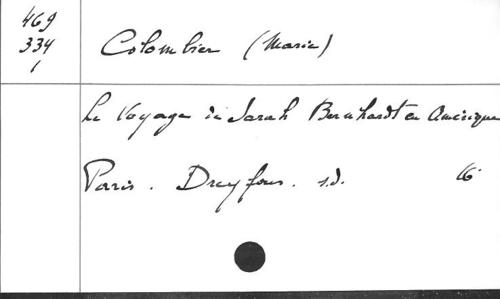 469
334
1
Colombier (Marie)
Le Voyage de Sarah Bernhardt en Amérique
Paris. Dreyfous. s.d. 16